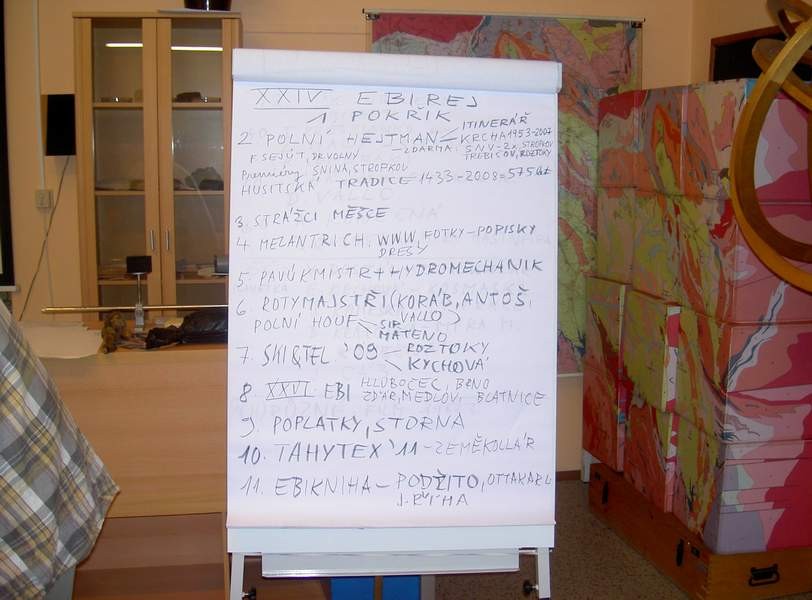 XXIV EBIREJ
1 POKŘIK
2. POLNÍ HEJTMAN - ITINERÁŘ
KRCHA 1953-2007
F. SEJÚT, DR. VOLNY - ZDARMA: S.N.V-2x STROPKOV
TREBIŠOV, ROZTOKY
Premiéry SNINA, STROPKOV
HUSITSKÁ TRADICE 1433-2008=575 let
3 STRÁŽCI MĚŠCE
4. MELANTRICH. WWW, FOTKY-POPISKY
DRESY
5. PAVÚKMISTR+HYDROMECHANIK
6 ROTYMAJSTŘI (KORÁB, ANTOŠ,
VALLO)
POLNÍ HOUF - SIR
MATENO
7. SKIQTEL '09 - ROZTOKY
KYCHOVÁ
8 XXVI. EBI HLUBOČEC, BRNO
ŽDÁR, MEDLOV, BLATNICE
9 POPLATKY, STORNA
10. TAHYTEX '11 - ZEMĚKOLLÁR
11. EBIKNIHA - PODŽITO, OTTAKARU
J. ŘÍHA